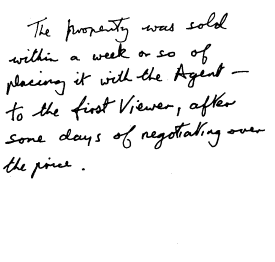 The property was sold
within a week or so of
placing it with the Agent —
to the first Viewer, after
some days of negotiating over
the price.